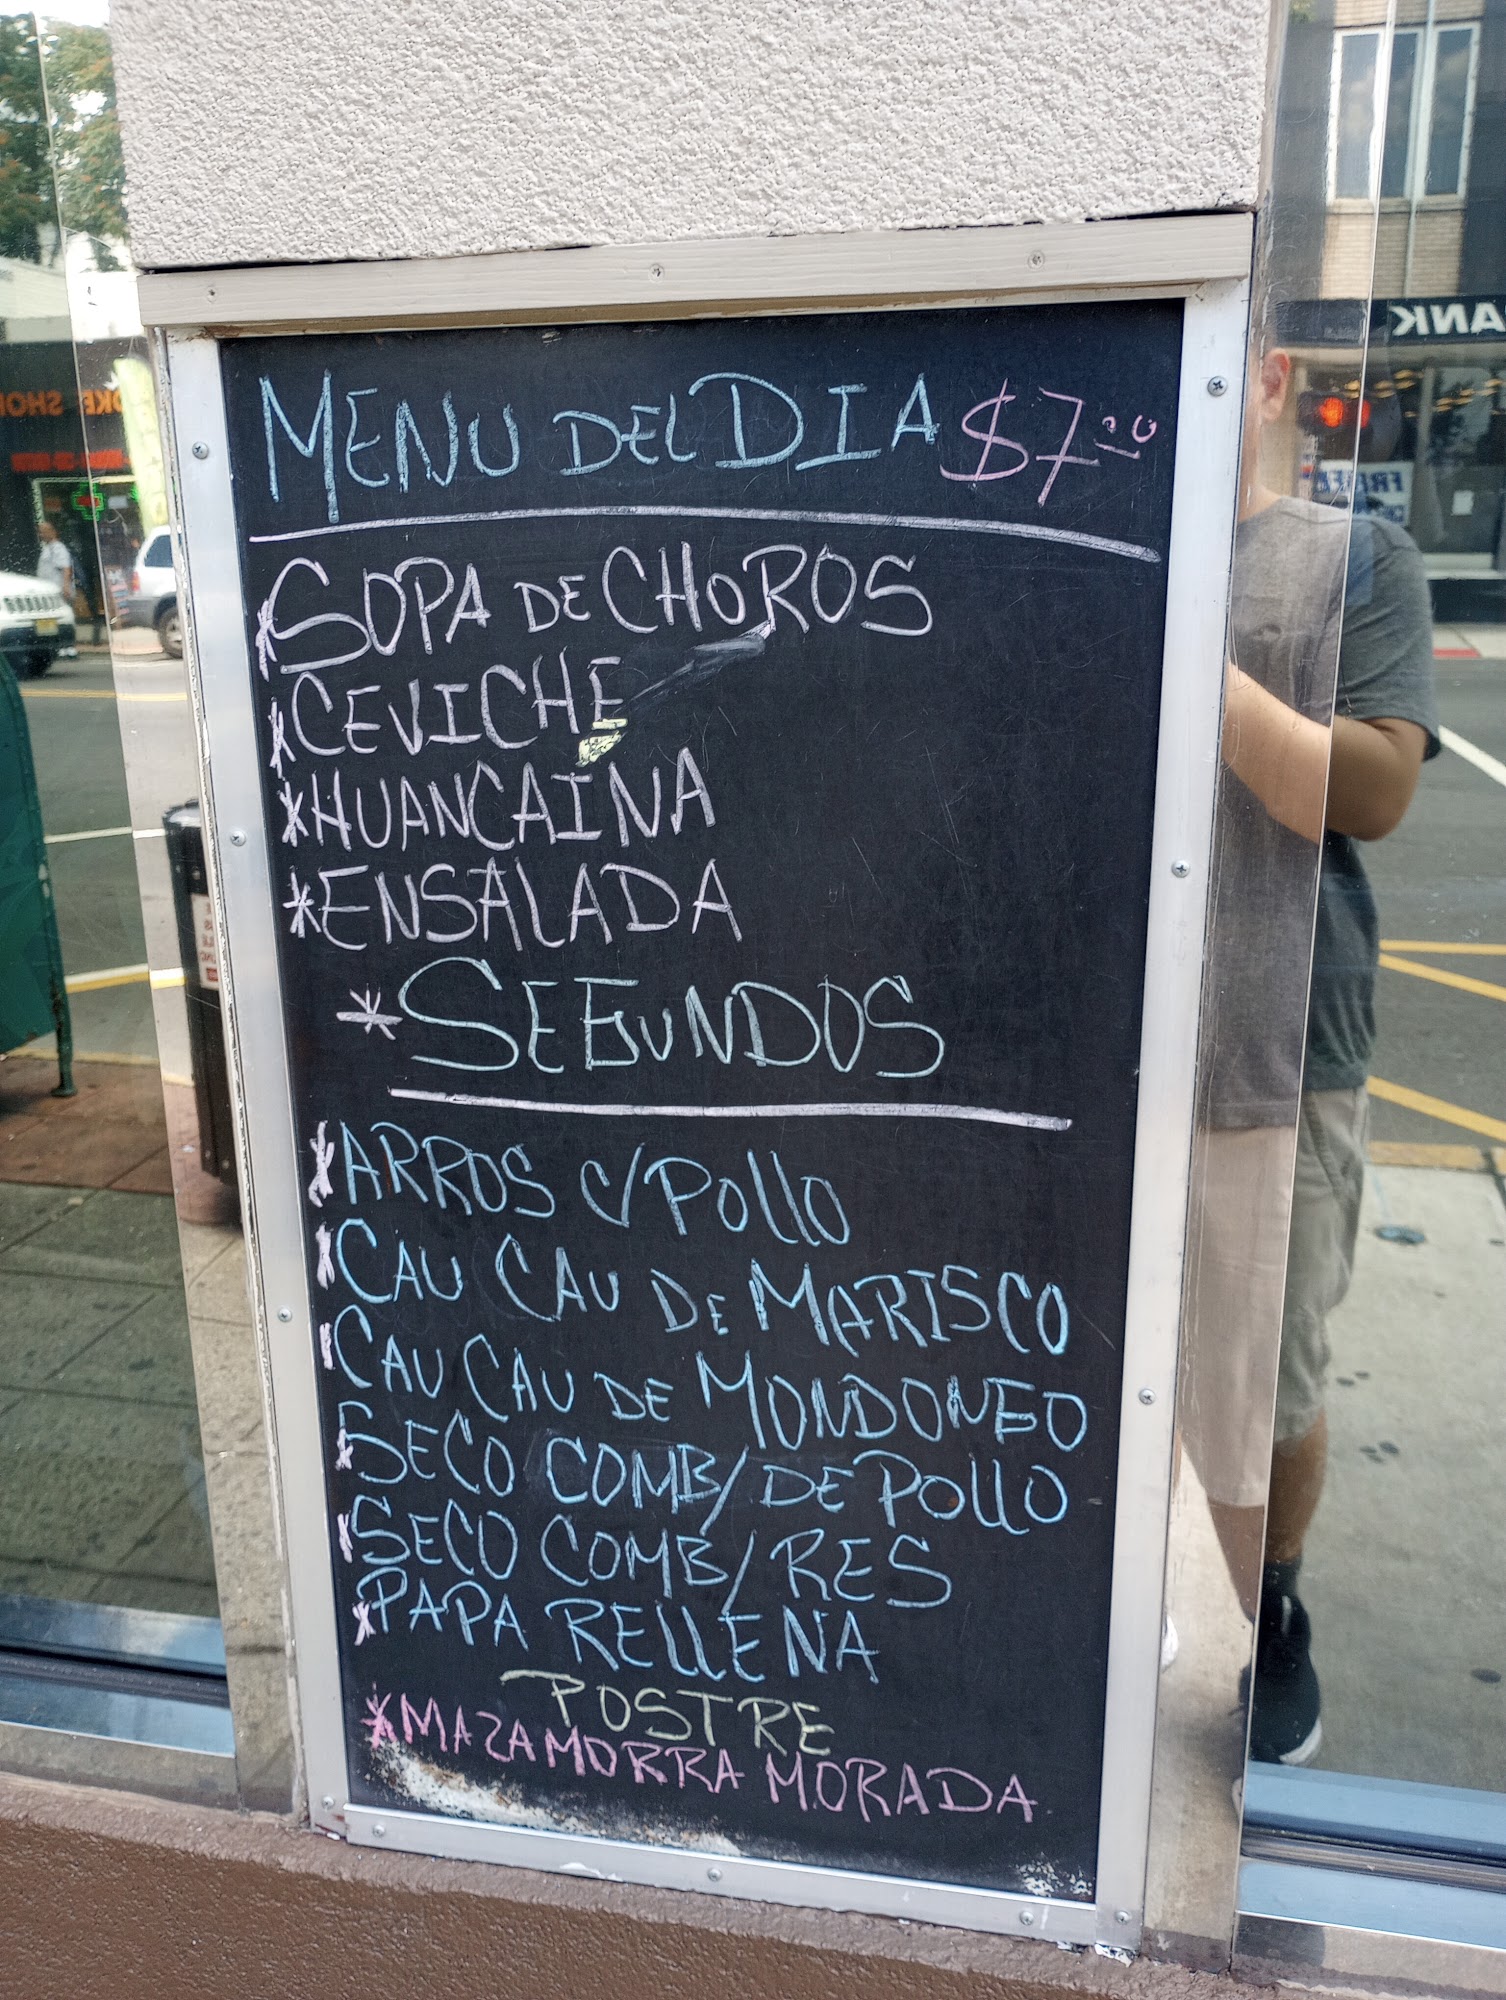 MENU DEL DIA $7.00
*SOPA DE CHOROS
*CEVICHE
*HUANCAINA
*ENSALADA
*SEGUNDOS
*ARROS C/POllO
*CAU CAU DE MARISCO
*CAU CAU DE MONDONGO
*SECO COMB/DE POllO
*SECO COMB/RES
*PAPA RELLENA
POSTRE
*MAZAMORRA MORADA
BANK
FREE